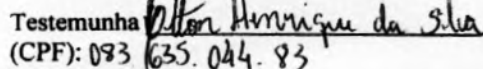 Testemunha Dilton Henrique da Silva
(CPF): 083 635.044.83